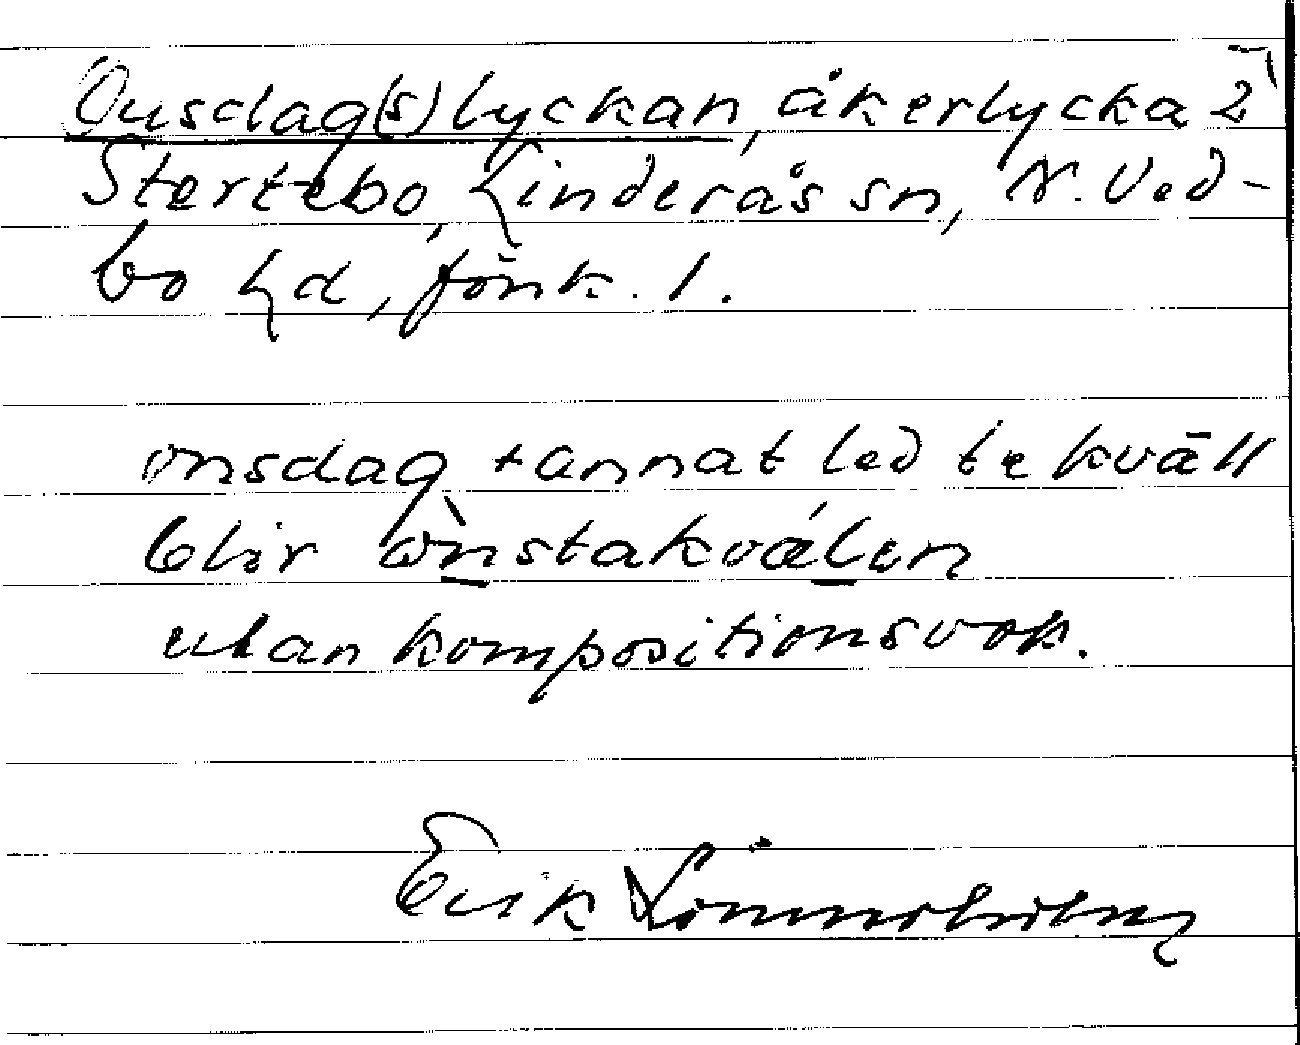 Onsdag(s)lyckan, åkerlycka 2
Stertebo, Linderås sn, N. Ved-
bo hd, Jönk. l.
onsdag + annat led te kväll
blir ònstakválen
utan kompositionsvok.
Erik